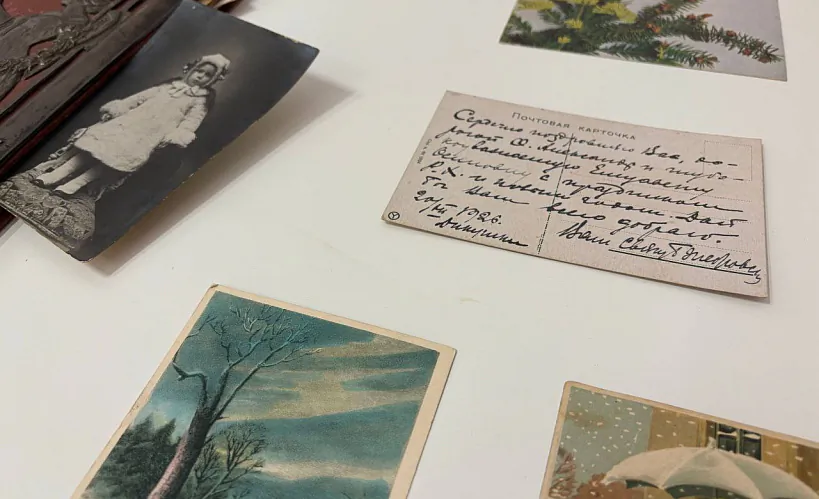 Почтовая карточка
Сердечно поздравляю Вас, до-
рогой О. Александр и глубо-
коуважаемую Елизавету
с праздником
Р. Х. и новым годом. Дай
Бог Вам всего доброго.
20/XII 1926. Ваш